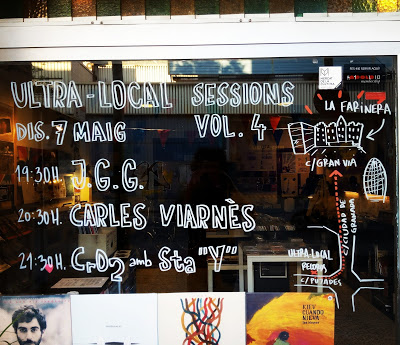 ULTRA-LOCAL SESSIONS
DIS. 7 MAIG VOL. 4
19:30H. J.G.G.
20:30H. CARLES VIARNÈS
21:30H. CrO2 amb Sta "Y"
LA FARINERA
C/GRAN VIA
C/CIUDAD DE GRANADA
ULTRA-LOCAL
RECORDS
C/PUJADES